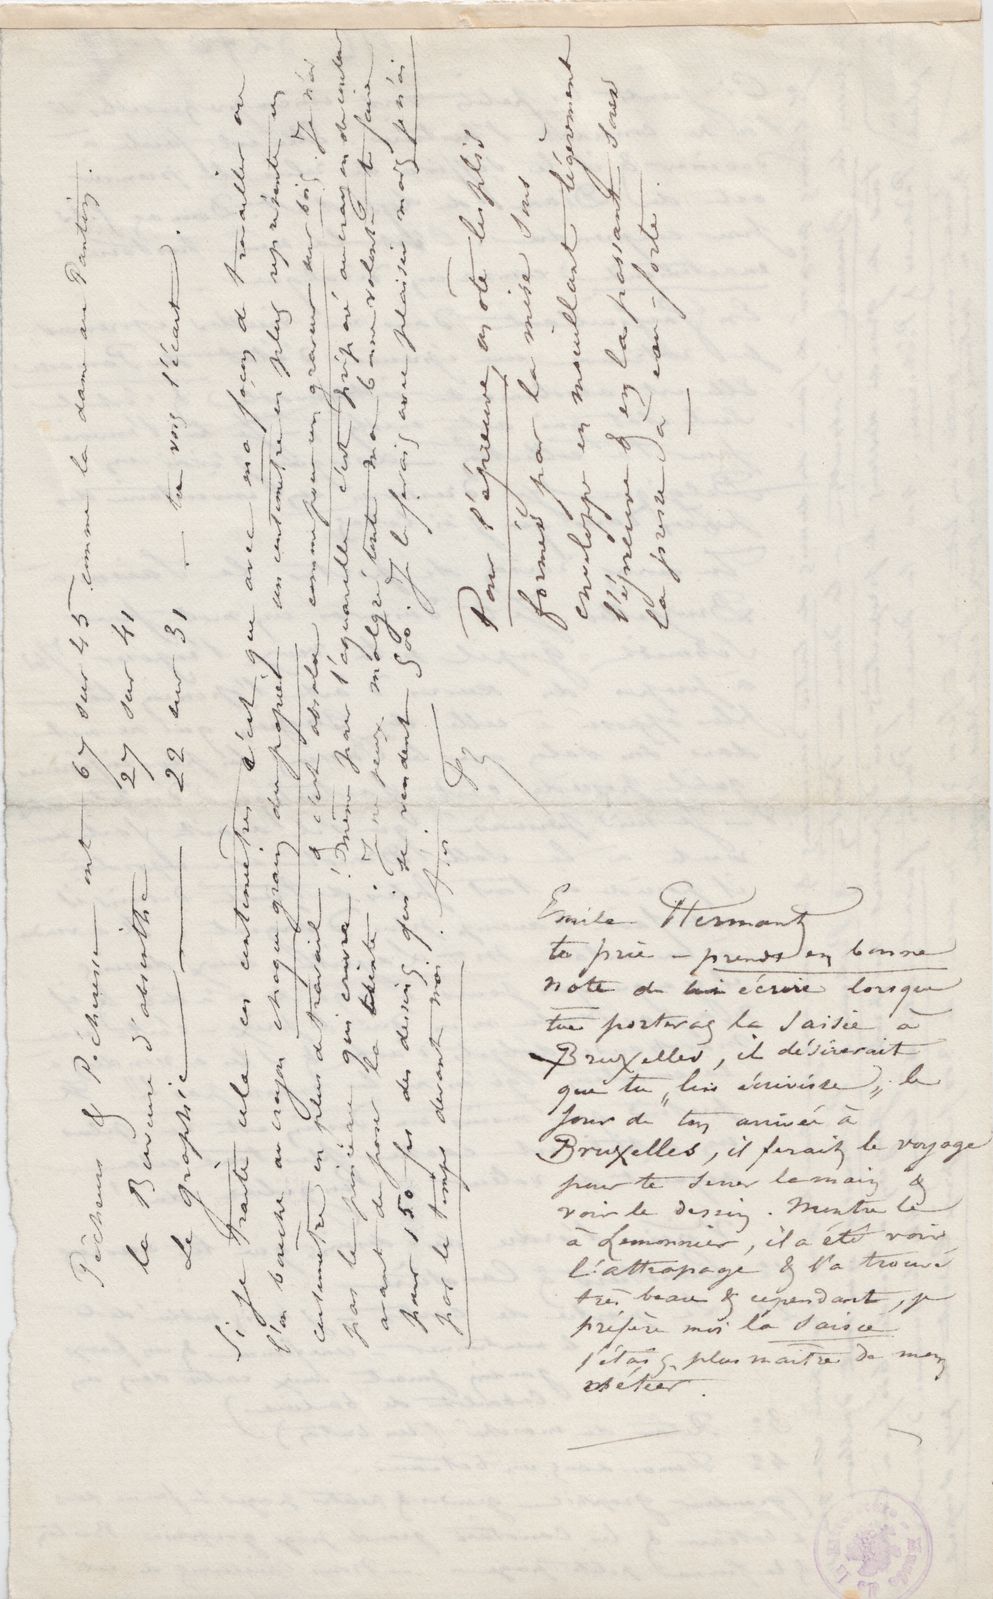 Pêcheurs & Pêcheresses ont 67 sur 45 comme la dame au Pantin.
la Buveuse d'absinthe 27 sur 41
Le graphie 22 sur 31 — tu vois l'écart.
Si je traite cela en centimètres c'est que avec ma façon de travailler on
l'on bouche au crayon chaque grain du papier un centimètre en plus représente un
centimètre en plus de travail & c'est absolu comme pour un graveur sur bois. Je n'ai
pas le pinceau qui couvre! même pour l'aquarelle c'est préparé au crayon de couleur
avant de poser la teinte. Je ne peux malgré toute ma bonne volonté te faire
pour 150 frs des dessins qui se vendent 500. Je le ferais avec plaisir mais je n'ai
par le temps devant moi.
Pour l'épreuve, on ôte les plis
formés par la mise sous
enveloppe en mouillant légèrement
l'épreuve & en la passant sous
la presse à eau-forte.
Emile Hermant
te prie — prends en bonne
note de lui écrire lorsque
tu porteras la Saisie à
Bruxelles, il désirerait
que tu "lui écrivisse", le
jour de ton arrivée à
Bruxelles, il ferait le voyage
pour te serrer la main &
voir le dessin. Montre le
à Lemonnier, il a été voir
l'attrapage & l'a trouvé
très beau & cependant, je
préfère moi la Saisie
j'étais plus maître de mon
métier.